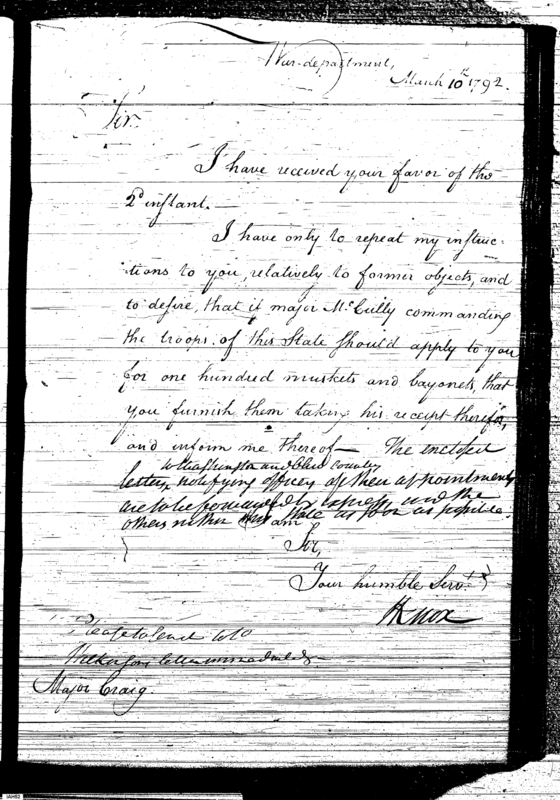 War-department,
March 10th 1792.
Sir.
I have received your favor of the
2d instant.
I have only to repeat my instruc-
tions to you, relatively to former objects, and
to desire, that if major McCully commanding
the troops of this State should apply to you
for one hundred muskets and bayonets, that
you furnish them taking his receipt therefor,
and inform me thereof— The enclosed
to Washington and Ohio county
letters, notifying officers of their appointments
are to be forwarded by express and the
others within this State as soon as possible.
I am
Sir,
Your humble Servt
HKnox
Please to send Col
Wilkinsons letter immediately
Major Craig.
IAH82